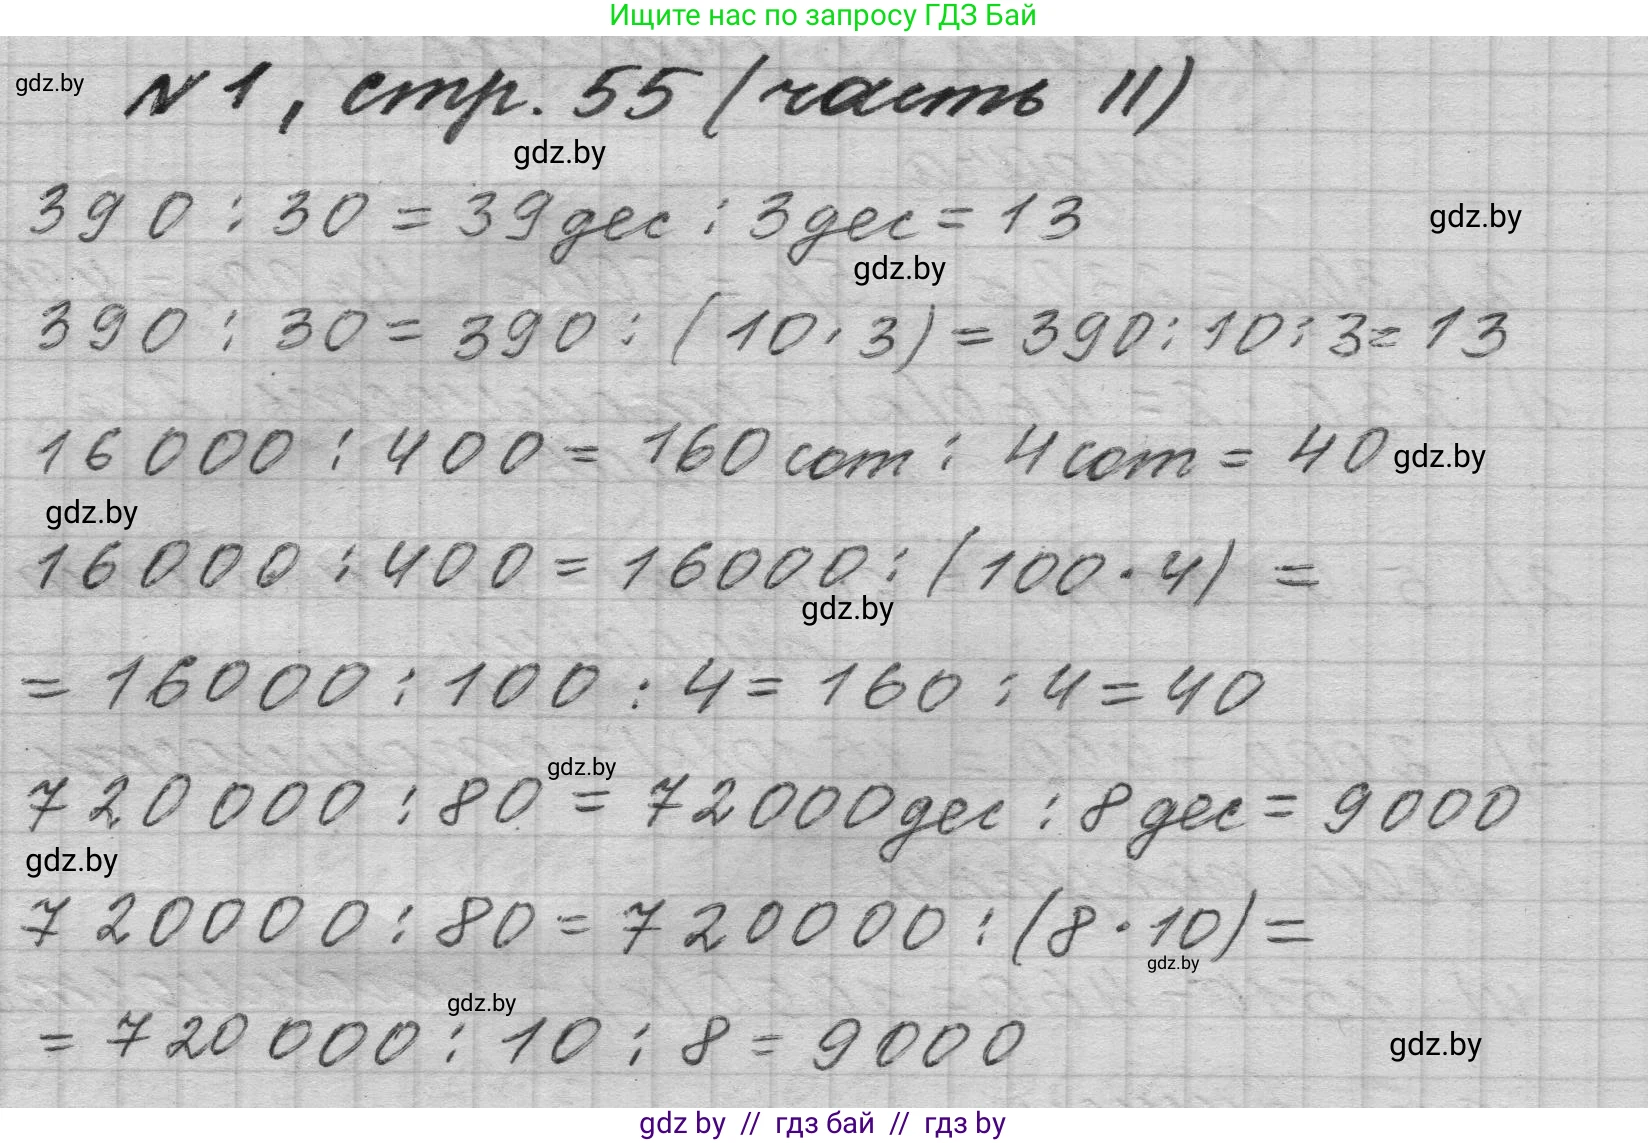 Ищите нас по запросу ГДЗ Бай
gdz.by
№ 1, стр. 55 (часть II)
gdz.by
390 : 30 = 39 дес : 3 дес = 13
gdz.by
gdz.by
390 : 30 = 390 : (10 · 3) = 390 : 10 : 3 = 13
16000 : 400 = 160 сот : 4 сот = 40
gdz.by
gdz.by
16000 : 400 = 16000 : (100 · 4) =
gdz.by
= 16000 : 100 : 4 = 160 : 4 = 40
gdz.by
720000 : 80 = 72000 дес : 8 дес = 9000
gdz.by
720000 : 80 = 720000 : (8 · 10) =
gdz.by
gdz.by
= 720000 : 10 : 8 = 9000
gdz.by
gdz by // гдз бай // гдз by